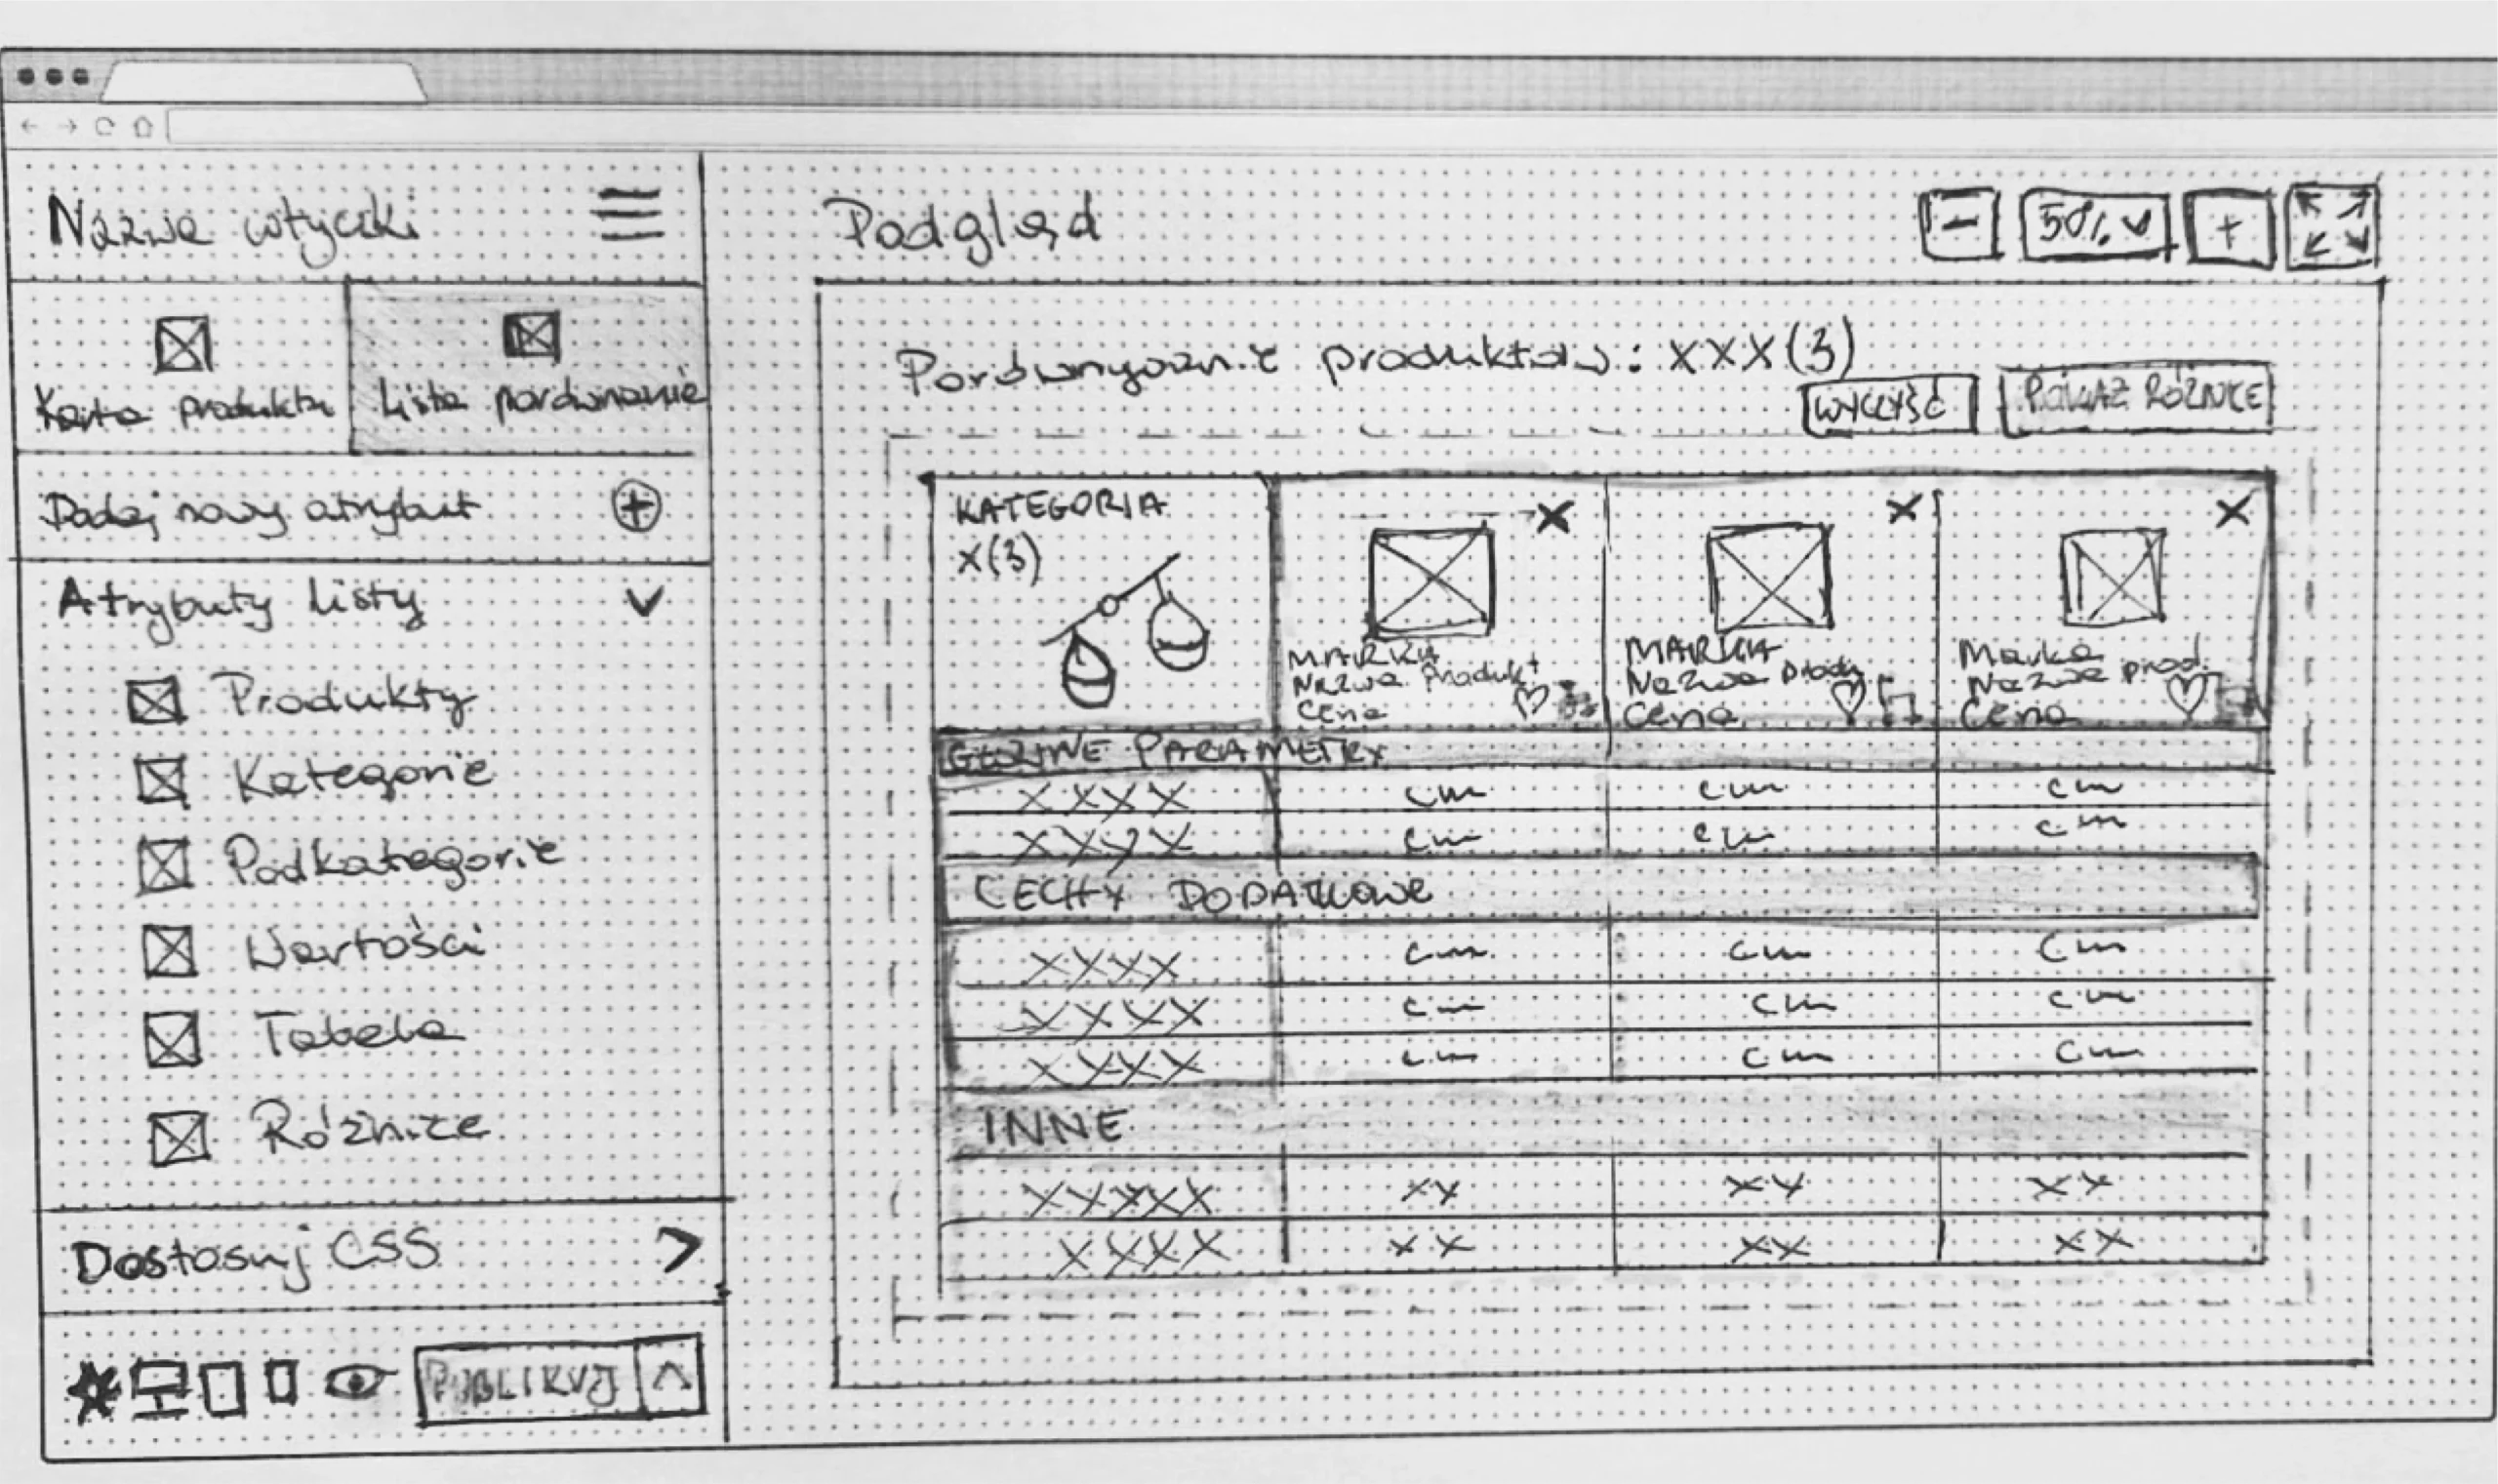 Nazwa wtyczki
Podgląd
50%
Karta produktu
Lista porównanie
Dodaj nowy atrybut
Atrybuty listy
Produkty
Kategorie
Podkategorie
Wartości
Tabela
Różnice
Dostosuj CSS
PUBLIKUJ
Porównywanie produktów: XXX(3)
WYCZYŚĆ
POKAŻ RÓŻNICE
KATEGORIA
X(3)
MARKA
Nazwa Produkt
Cena
MARKA
Nazwa prod.
Cena
Marka
Nazwa prod.
Cena
GŁÓWNE PARAMETRY
XXXX
XXXX
CECHY DODATKOWE
XXXX
XXXX
XXXX
INNE
XXXXX XX XX XX
XXXX XX XX XX